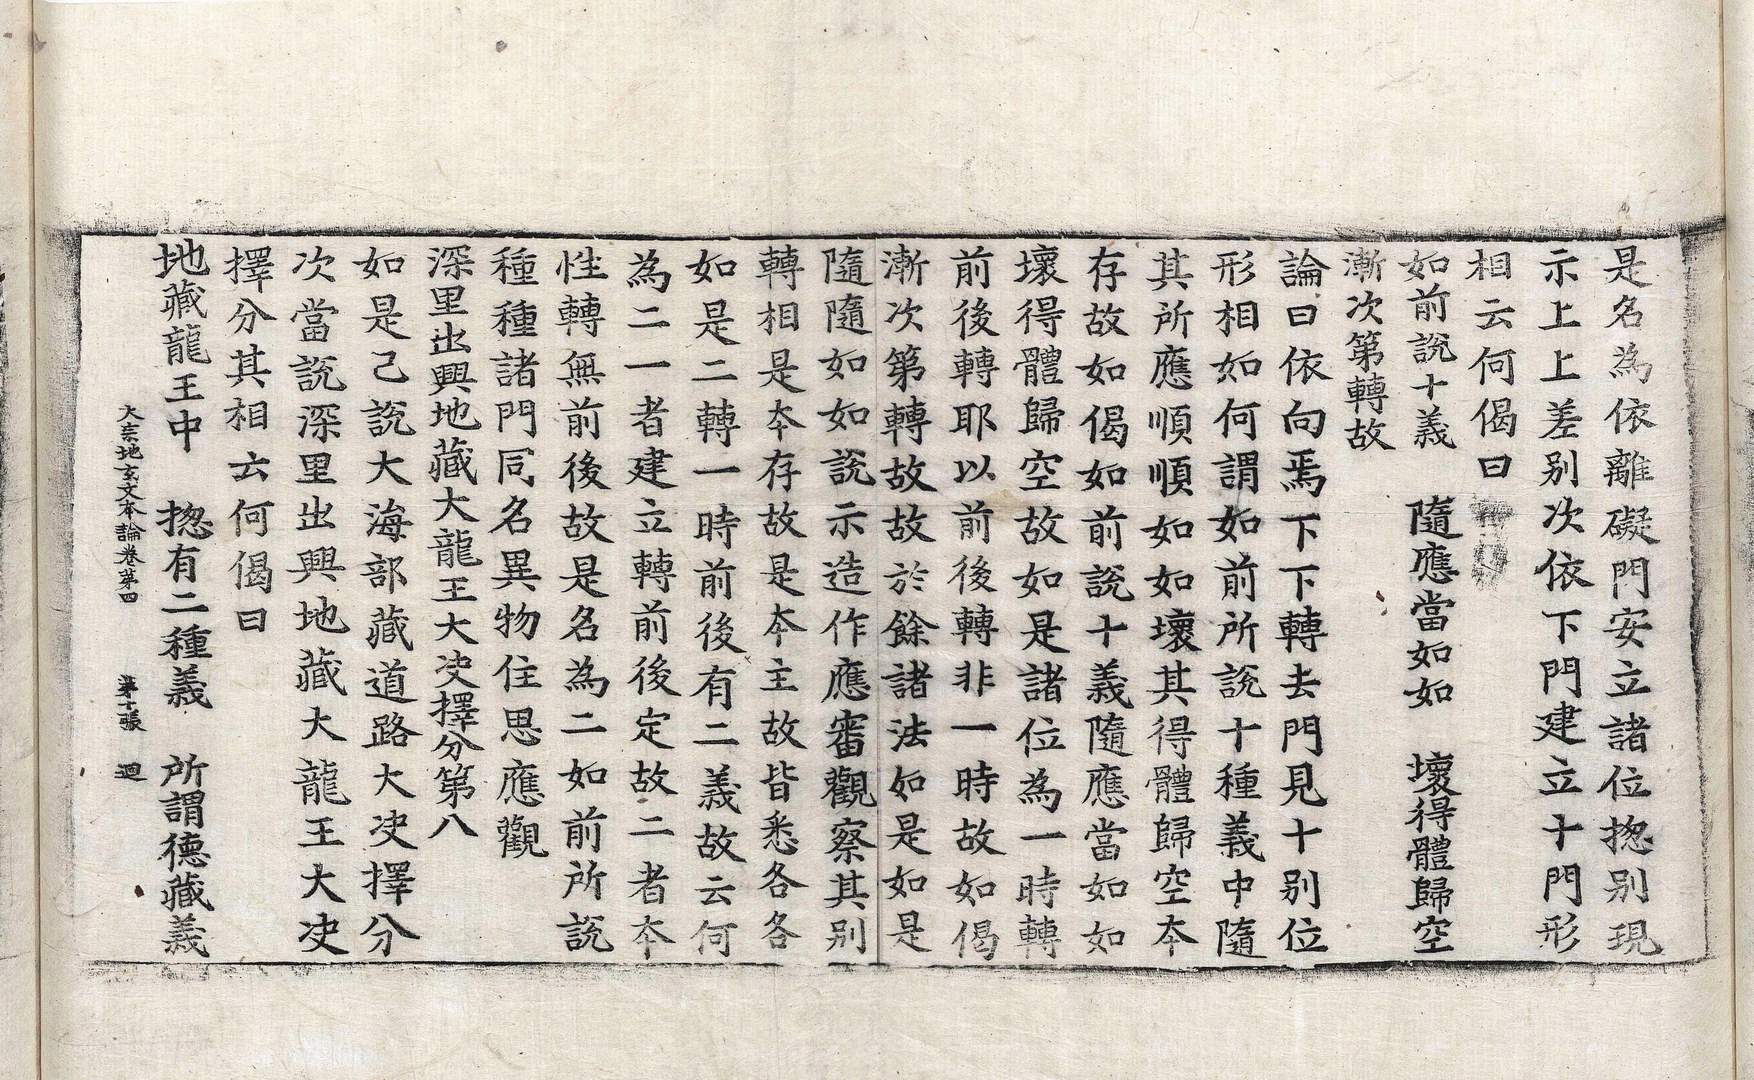 是名為依離礙門安立諸位揔別現
示上上差別次依下門建立十門形
相云何偈曰
如前說十義　隨應當如如　壞得體歸空
漸次第轉故
論曰依向焉下下轉去門見十別位
形相如何謂如前所說十種義中隨
其所應順順如如壞其得體歸空本
存故如偈如前說十義隨應當如如
壞得體歸空故如是諸位為一時轉
前後轉耶以前後轉非一時故如偈
漸次第轉故故於餘諸法如是如是
隨隨如如說示造作應審觀察其別
轉相是本存故是本主故皆悉各各
如是二轉一時前後有二義故云何
為二一者建立轉前後定故二者本
性轉無前後故是名為二如前所說
種種諸門同名異物住思應觀
深里出興地藏大龍王大决擇分第八
如是已說大海部藏道路大决擇分
次當說深里出興地藏大龍王大决
擇分其相云何偈曰
地藏龍王中　揔有二種義　所謂德藏義
大宗地玄文本論卷第四　第十張　迴